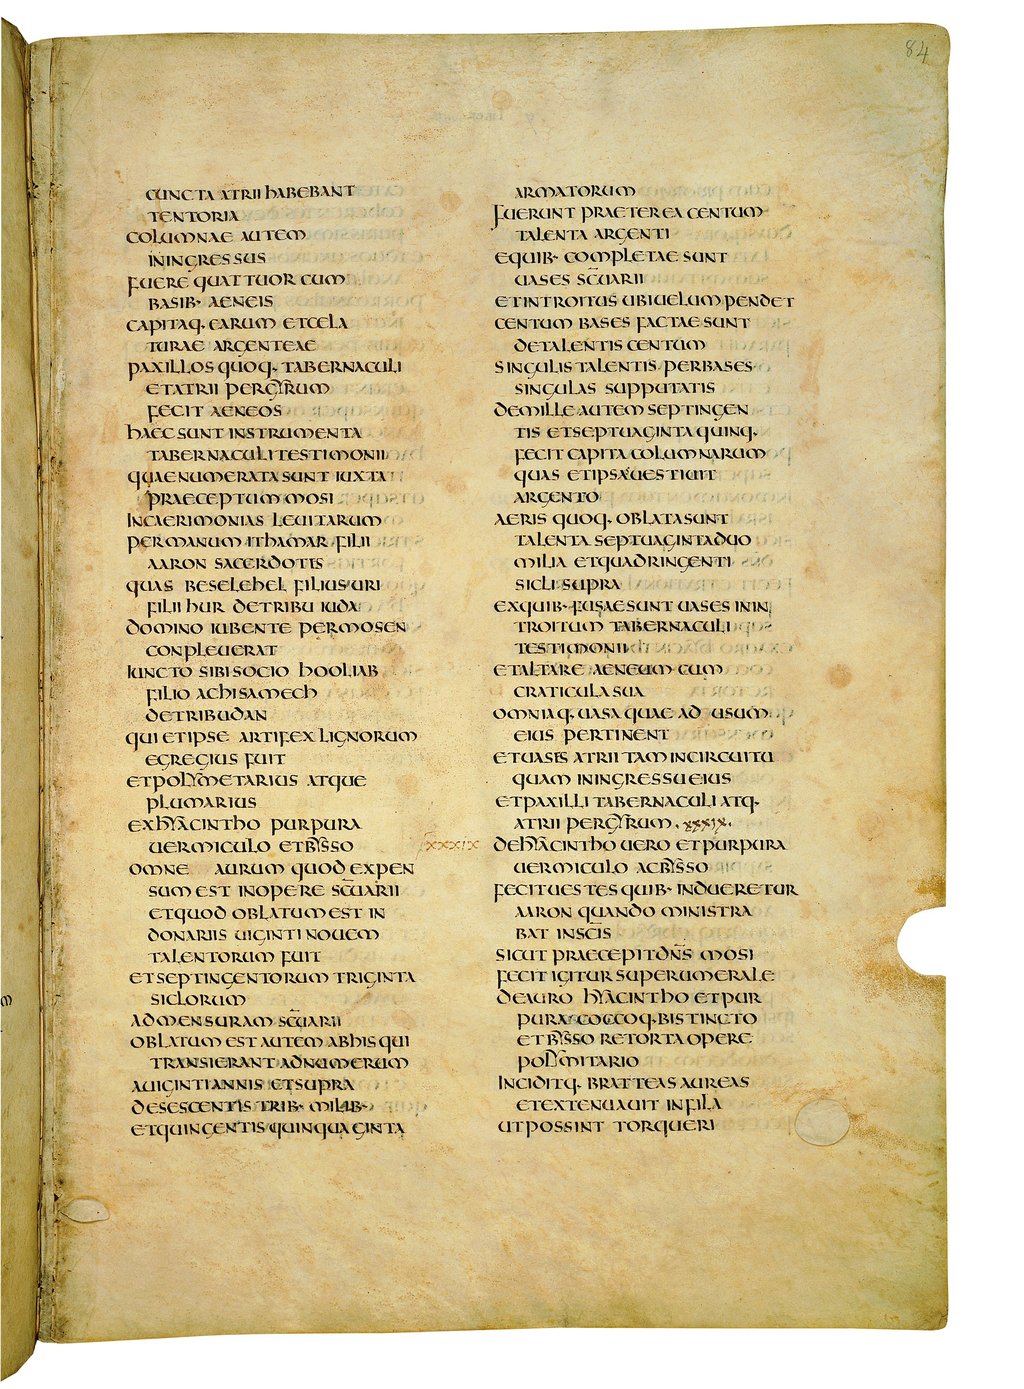 84
CUNCTA ATRII HABEBANT
TENTORIA
COLUMNAE AUTEM
ININGRESSUS
FUERE QUATTUOR CUM
BASIB· AENEIS
CAPITAQ· EARUM ETCELA
TURAE ARGENTEAE
PAXILLOS QUOQ· TABERNACULI
ETATRII PERGYRUM
FECIT AENEOS
HAEC SUNT INSTRUMENTA
TABERNACULI TESTIMONII
QUAE NUMERATA SUNT IUXTA
PRAECEPTUM MOSI
INCAERIMONIAS LEUITARUM
PERMANUM ITHAMAR FILII
AARON SACERDOTIS
QUAS BESELEHEL FILIUS URI
FILII HUR DETRIBU IUDA
DOMINO IUBENTE PERMOSEN
CONPLEUERAT
IUNCTO SIBI SOCIO HOOLIAB
FILIO ACHISAMECH
DETRIBUDAN
QUI ETIPSE ARTIFEX LIGNORUM
EGREGIUS FUIT
ETPOLYMETARIUS ATQUE
PLUMARIUS
EXHYACINTHO PURPURA
UERMICULO ETBYSSO
OMNE AURUM QUOD EXPEN
SUM EST INOPERE SC̄UARII
ETQUOD OBLATUM EST IN
DONARIIS UIGINTI NOUEM
TALENTORUM FUIT
ETSEPTINGENTORUM TRIGINTA
SICLORUM
ADMENSURAM SC̄UARII
OBLATUM EST AUTEM ABHIS QUI
TRANSIERANT ADNUMERUM
AUIGINTI ANNIS ETSUPRA
DESESCENTIS TRIB· MILIB·
ETQUINGENTIS QUINQUAGINTA
ARMATORUM
FUERUNT PRAETEREA CENTUM
TALENTA ARGENTI
EQUIB· COMPLETAE SUNT
UASES SC̄UARII
ETINTROITUS UBIUELUM PENDET
CENTUM BASES FACTAE SUNT
DETALENTIS CENTUM
SINGULIS TALENTIS PERBASES
SINGULAS SUPPUTATIS
DEMILLE AUTEM SEPTINGEN
TIS ETSEPTUAGINTA QUINQ·
FECIT CAPITA COLUMNARUM
QUAS ETIPSA UESTIUIT
ARGENTO
AERIS QUOQ· OBLATA SUNT
TALENTA SEPTUAGINTADUO
MILIA ETQUADRINGENTI
SICLI SUPRA
EXQUIB· FUSAE SUNT UASES ININ
TROITUM TABERNACULI
TESTIMONII
ETALTARE AENEUM CUM
CRATICULA SUA
OMNIAQ· UASA QUAE AD USUM
EIUS PERTINENT
ETUASES ATRII TAM INCIRCUITU
QUAM ININGRESSU EIUS
ETPAXILLI TABERNACULI ATQ·
ATRII PERGYRUM· XXXIX·
XXXIX DEHYACINTHO UERO ETPURPURA
UERMICULO ACBYSSO
FECIT UESTES QUIB· INDUERETUR
AARON QUANDO MINISTRA
BAT INSC̄IS
SICUT PRAECEPIT DN̄S MOSI
FECIT IGITUR SUPERUMERALE
DEAURO HYACINTHO ETPUR
PURA COCCOQ· BISTINCTO
ETBYSSO RETORTA OPERE
POLYMITARIO
INCIDITQ· BRATTEAS AUREAS
ETEXTENUAUIT INFILA
UTPOSSINT TORQUERI